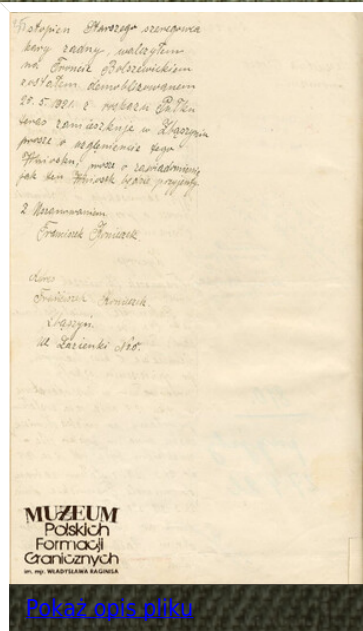 stopien Starszego szeregowca
kary żadny, walczyłem
na Froncie Bolszewickiem
zostałem demobilizowanem
25.5.1921. z roskazu Pułku
teras zamieszkuje w Zbąszyniu
prosze o uzglenienie tego
Wniosku, prosze o zawiadomienie
jak ten Wniosek będzie przyjenty
Z Uszanowaniem
Franciszek
Adres
Franciszek
Zbąszyń.
Ul Łazienki
MUZEUM
Polskich
Formacji
Granicznych
im. mjr. WŁADYSŁAWA RAGINISA
Pokaż opis pliku